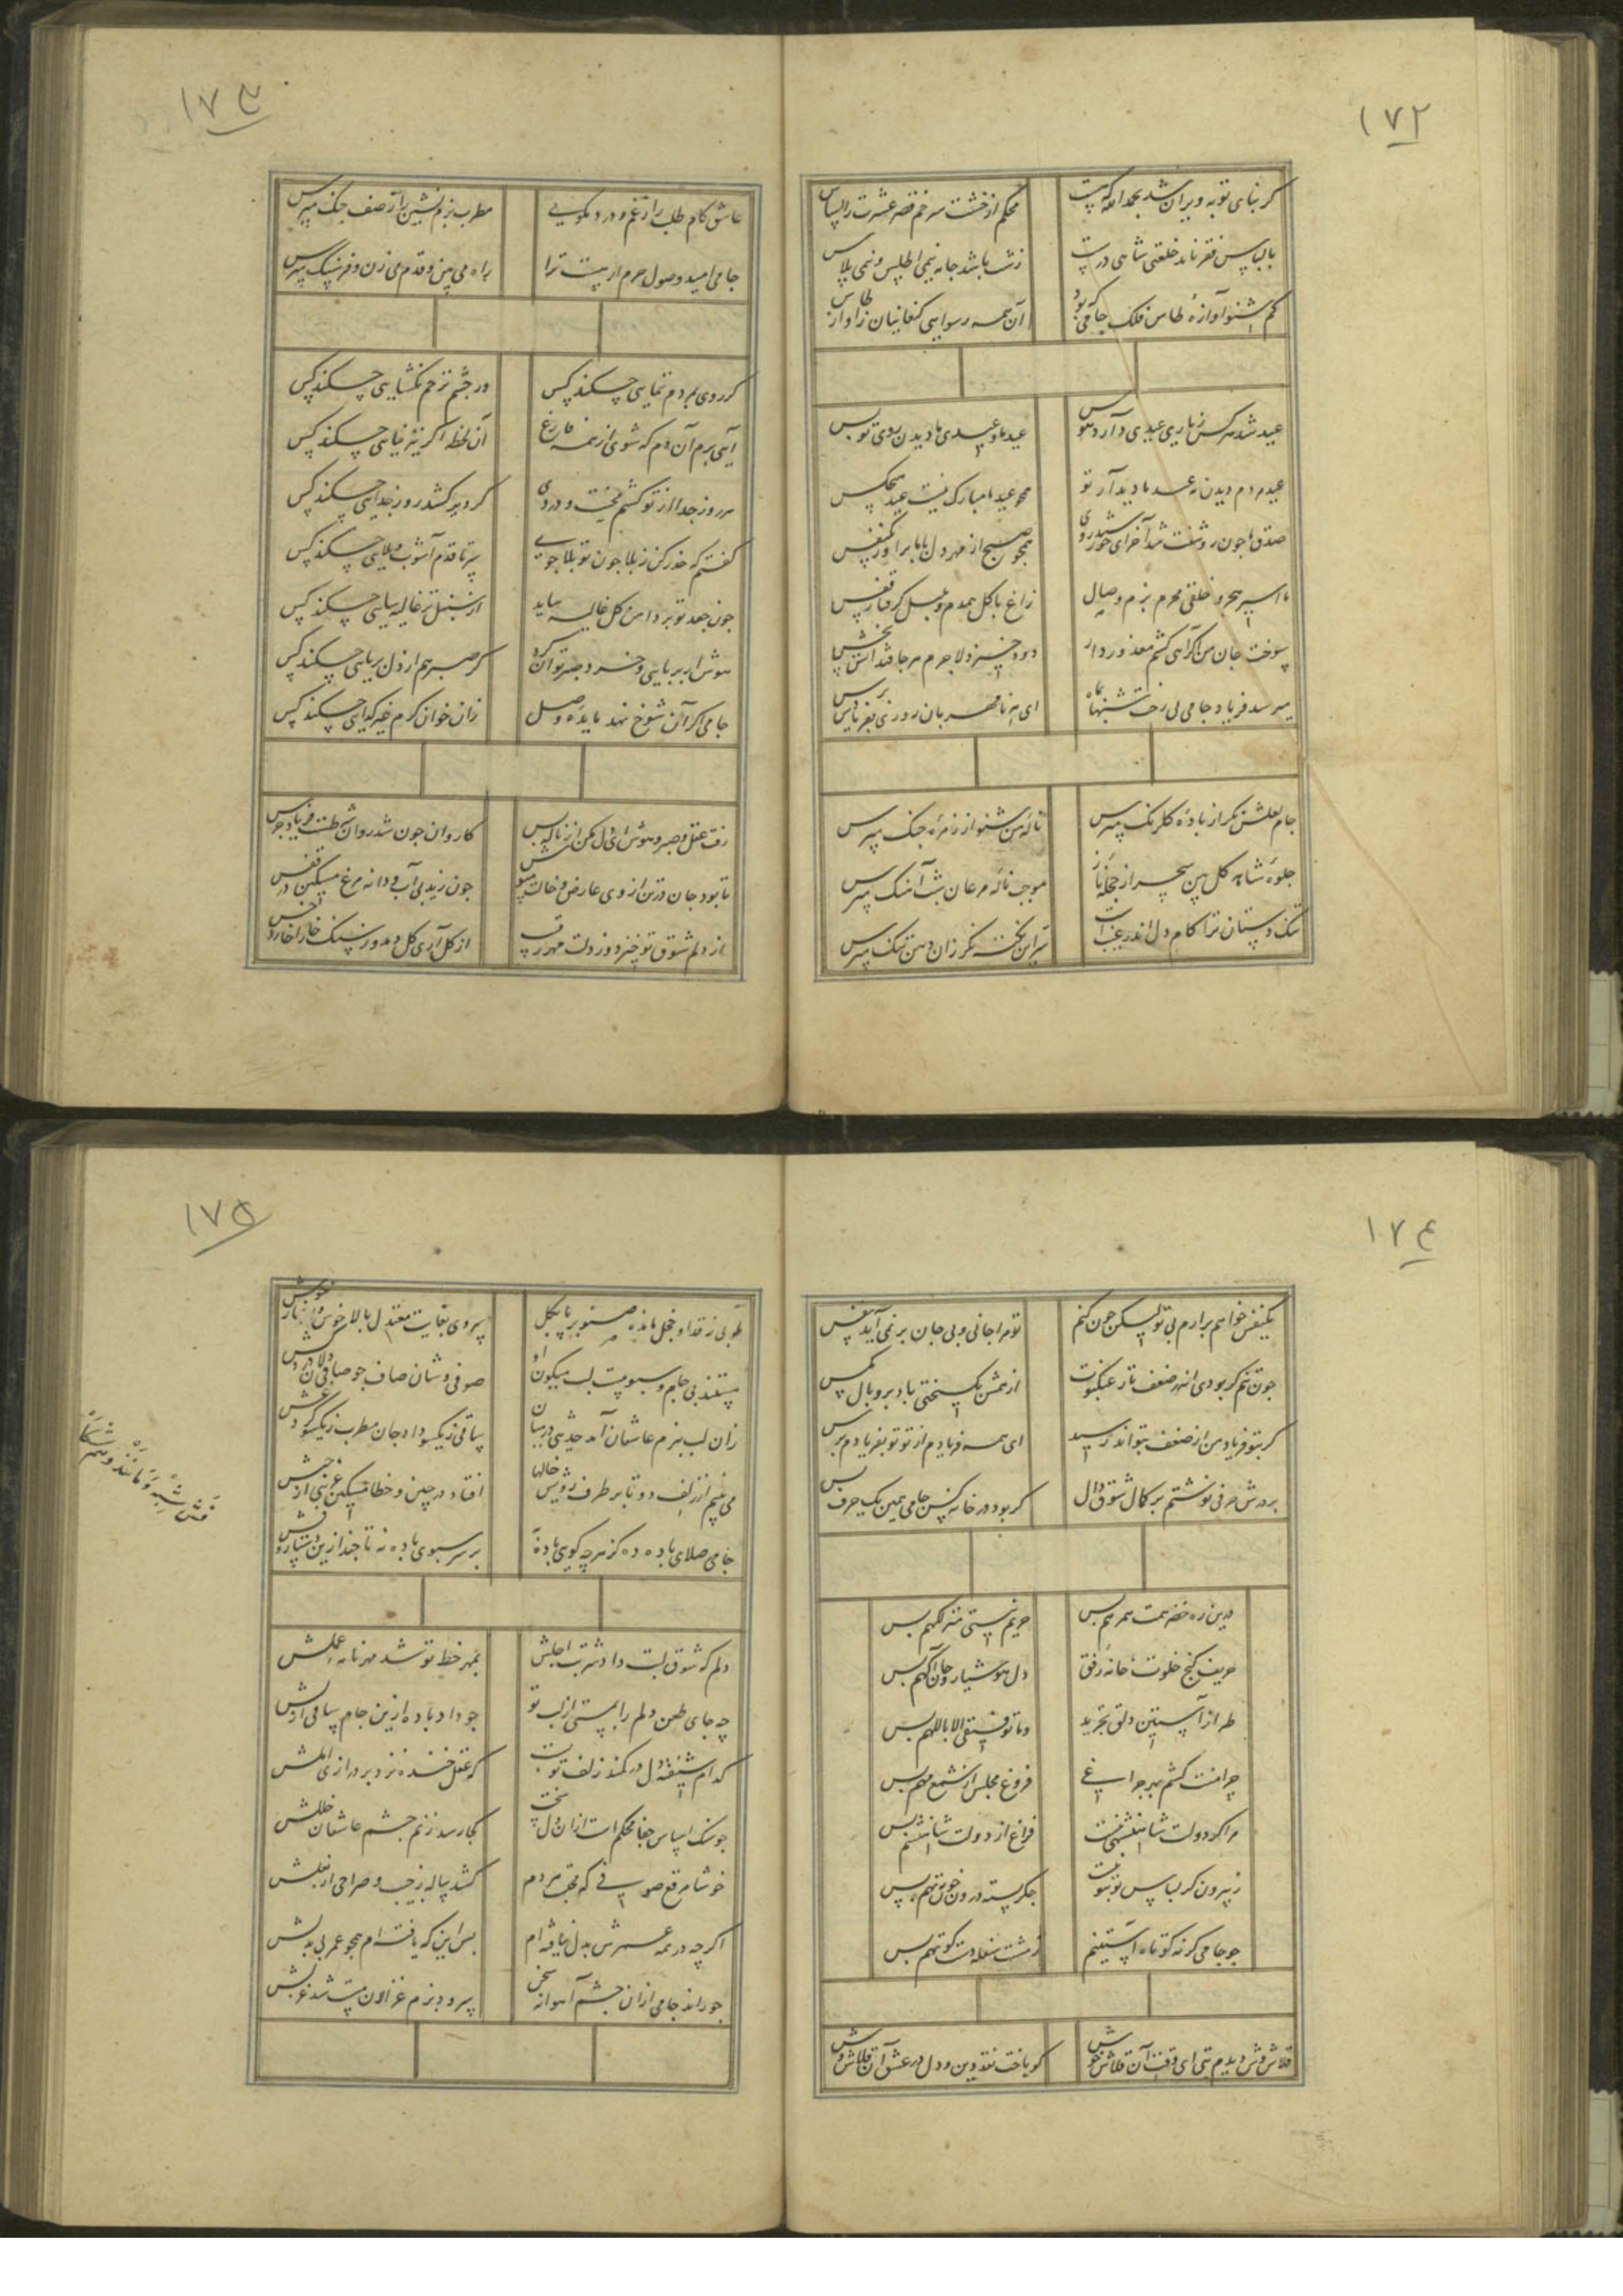 ۱۷۲
کر بنای توبه ویران شد بحمدالله که هست
محکم از خشت سر خم قصر عشرت را اساس
با لباس فقر ناید خلعت شاهی درست
زشت باشد جامه نیمی اطلس و نیمی پلاس
کم شنو آوازه طاس فلک جامی که بود
آن همه رسوایی کنعانیان ز آواز طاس
عید شد هرکس ز یاری عیدی دارد هوس
عید ما و عیدی ما دیدن روی تو بس
عید مردم دیدن مه عید ما دیدار تو
همچو عید ما مبارک نیست عید هیچکس
صدق ما چون روشنت شد آخر ای خورشید روی
همچو صبح از مهر دل با ما برآور یک نفس
ما اسیر هجر و خلقی محرم بزم وصال
زاغ با کل همدم و بلبل کرفتار قفس
سوخت جان من کر آهی کشم معذور دار
دود خیزد لاجرم هرجا فتد آتش بخس
میرسد فریاد جامی بی رخت شبها بماه
ای مه نامهربان روزی بفریادش برس
جام لعلش نکر از باده کلرنک مپرس
ناله من شنو از زمزمه چنک مپرس
جلوه شاهد کل بین سحر از حجله ناز
موجب ناله مرغان شب آهنک مپرس
تنک دستان ترا کام دل اندر عجب است
سر این نکته نکر زان دهن تنک مپرس
۱۷۳
عاشق کام طلب را ز غم و درد مکوی
مطرب بزم نشین را ز صف جنک مپرس
جامی امید وصول حرم ار هست ترا
راه می بین و قدم می زن و فرسنک مپرس
کر روی بمردم ننمایی چکند کس
ور چشم ترحم نکشایی چکند کس
آیی برم آن دم که شوی از همه فارغ
آن لحظه اکر نیز نیایی چکند کس
هر روز جدا از تو کشم محنت و دردی
کر دیر کشد روز جدایی چکند کس
کفتم که حذر کن ز بلا چون تو بلا جوی
سر تا قدم آشوب و بلایی چکند کس
چون جعد تو بر دامن کل غالیه ساید
از سنبل تر غالیه سایی چکند کس
هوش ار بربایی و خرد صبر توان کرد
کر صبر هم از دل بربایی چکند کس
جامی اکر آن شوخ نهد مایده وصل
زان خوان کرم غیر کدایی چکند کس
رفت عقل و صبر و هوش ای دل مکن از ناله بس
کاروان چون شد روان شرطست فریاد جرس
تا بود جان در تن از وی عارض و خالت مپوش
چون زید بی آب و دانه مرغ مسکین در قفس
از دلم شوق تو خیزد وز دلت مهر رقیب
از کل آری کل دمد وز سنک خارا خار و خس
۱۷۴
یکنفس خواهم برآرم بی تو لیکن چون کنم
تو مرا جانی و بی جان بر نمی آید نفس
چون تنم کر بودی اندر ضعف تار عنکبوت
از تنش بکسیختی باد پر و بال مکس
کر بتو فریاد من از ضعف نتواند رسید
ای همه فریادم از تو تو بفریادم برس
بر درش حرفی نوشتم بر کمال شوق دال
کر بود در خانه کس جامی همین یک حرف بس
درین ره خضر همت همرهم بس
حریم نیستی منزلکهم بس
حریف کنج خلوت خانه رفتن
دل هوشیار و جان آکهم بس
طراز آستین دلق تجرید
وما توفیقی الا باللهم بس
چرا منت کشم بهر چراغی
فروغ مجلس از شمع مهم بس
مرا کر دولت شاهنشهی نیست
فراغ از دولت شاهنشهم بس
ز بیرون کر لباس تو بتو نیست
جکر بسته درون خون ته بتهم بس
چو جامی کرنه کوتاه آستینم
ز مشت سفله دست کوتهم بس
قلاش وش دیدم بتی ای وقت آن قلاش خوش
کو باخت نقد دین و دل در عشق آن قلاش وش
۱۷۵
طوبی ز قد او خجل مانده صنوبر پا بکل
سروی بغایت معتدل بالاش خوش رفتار خوش
مستند بی جام و سبو مست لب میکون او
صوفی وشان صاف جو صافی دلان درد کش
زان لب ببزم عاشقان آمد حدیثی در میان
ساقی ز یکسو داد جان مطرب ز یکسو کرد غش
می بینم از زلف دوتا بر طرف رویش خالها
افتاده در چین و خطا مسکین غریبی از حبش
جامی صلای باده ده کز هرچه کویی باده به
بر سر سبوی باده نه تا چند ازین دستار و فش
دلم که شوق لبت داد شربت اجلش
بمهر خط تو شد مهر نامه عملش
چه جای طعن دلم را بمستی از لب تو
چو داد باده ازین جام ساقی ازلش
کدام شیفته دل در کمند زلف تو بست
که عقل خنده نزد بر درازی املش
چو سنک اساس جفا محکم است ازان دل سخت
کجا رسد ز نم چشم عاشقان خللش
خوشا مرقع صوفی که محتسب هردم
کشد پیاله ز جیب و صراحی از بغلش
اکرچه در همه عمرش بدل نیافته ام
بس این که یافته ام همچو عمر بی بدلش
چو راند جامی ازان چشم آهوانه سخن
سرود بزم غزالان مست شد غزلش
فش شبه و مانند و همشکل